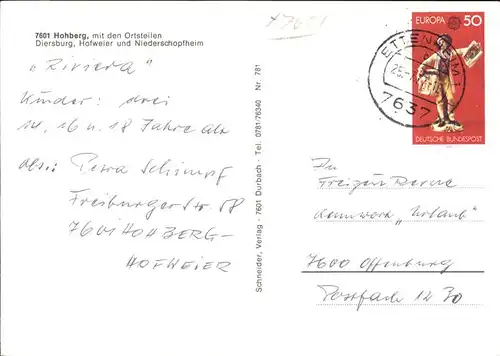 7601 Hohberg, mit den Ortsteilen
Diersburg, Hofweier und Niederschopfheim
"Riviera"
Kinder: drei
14, 16 u. 18 Jahre alt
Petra Schimpf
Freiburger Str. 58
7601 HOHBERG-
HOFWEIER
Schneider, Verlag - 7601 Durbach - Tel. 0781-76340 Nr. 781
EUROPA 50
DEUTSCHE BUNDESPOST
ETTENHEIM 1
7637
An
Freizeit Revue
Kennwort "Urlaub"
7600 Offenburg
Postfach 1230